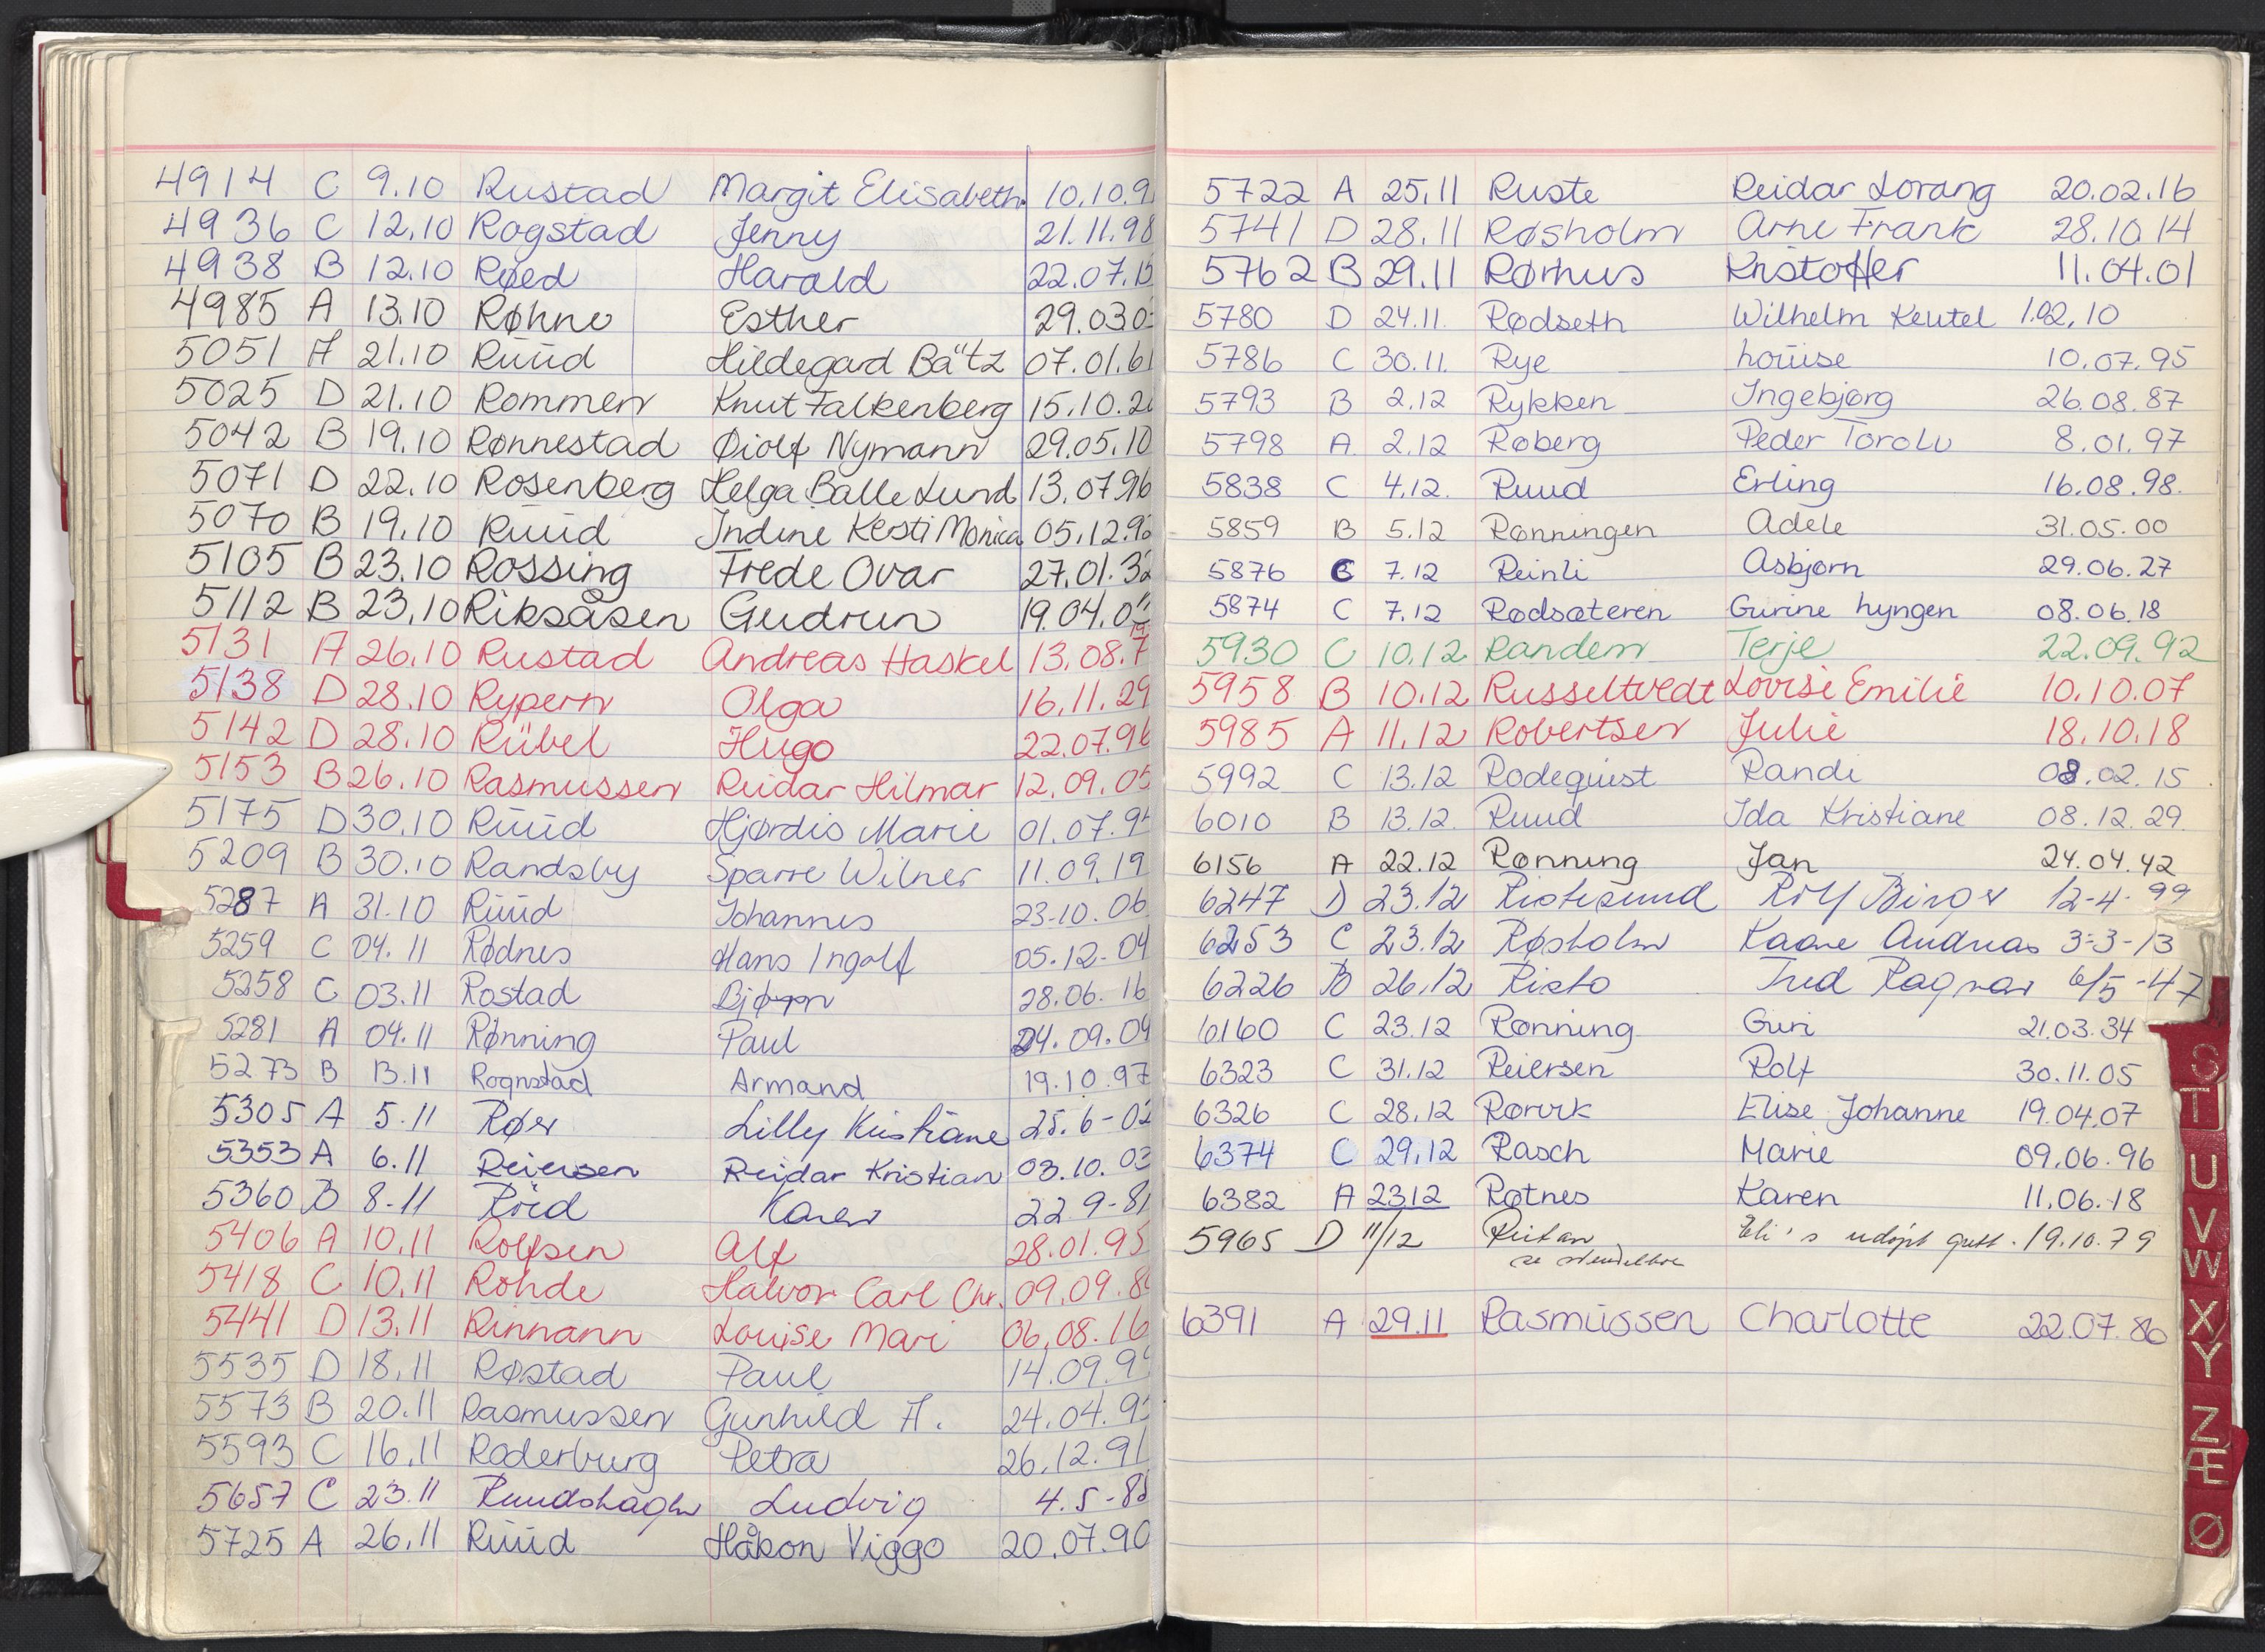 4914 C 9.10 Rustad Margit Elisabeth 10.10.9
4936 C 12.10 Rogstad Jenny 21.11.98
4938 B 12.10 Røed Harald 22.07.15
4985 A 13.10 Røhne Esther 29.03.0
5051 A 21.10 Ruud Hildegard Bätz 07.01.61
5025 D 21.10 Rommen Knut Falkenberg 15.10.2
5042 B 19.10 Rønnestad Øiolf Nymann 29.05.10
5071 D 22.10 Rosenberg Helga Balle Lund 13.07.96
5070 B 19.10 Ruud Indine Kesti Monica 05.12.9
5105 B 23.10 Rossing Frede Ovar 27.01.32
5112 B 23.10 Riksåsen Gudrun 19.04.0
5131 A 26.10 Rustad Andreas Haskel 13.08.7
5138 D 28.10 Rypern Olga 16.11.29
5142 D 28.10 Rübel Hugo 22.07.96
5153 B 26.10 Rasmussen Reidar Hilmar 12.09.05
5175 D 30.10 Ruud Hjørdis Marie 01.07.9
5209 B 30.10 Randsby Sparre Wilner 11.09.19
5287 A 31.10 Ruud Johannes 23.10.06
5259 C 04.11 Rødnes Hans Ingolf 05.12.04
5258 C 03.11 Rostad Bjørn 28.06.16
5281 A 04.11 Rønning Paul 24.09.04
5273 B 13.11 Rognstad Armand 19.10.97
5305 A 5.11 Røer Lilly Kristiane 25.6-02
5353 A 6.11 Reiersen Reidar Kristian 03.10.03
5360 B 8-11 Röed Karen 22 9-81
5406 A 10.11 Rolfsen Alf 28.01.95
5418 C 10.11 Rohde Halvor Carl Chr. 09.09.8
5441 D 13.11 Rinnann Louise Mari 06.08.16
5535 D 18.11 Røstad Paul 14.09.9
5573 B 20.11 Rasmussen Gunhild A. 24.04.9
5593 C 16.11 Roderburg Petra 26.12.91
5657 C 23.11 Ruudshagen Ludvig 4.5-88
5725 A 26.11 Ruud Håkon Viggo 20.07.90
5722 A 25.11 Ruste Reidar Lorang 20.02.16
5741 D 28.11 Røsholm Arne Frank 28.10.14
5762 B 29.11 Rørhus Kristoffer 11.04.01
5780 D 24.11. Rødseth Wilhelm Keutel 1.02.10
5786 C 30.11. Rye Louise 10.07.95
5793 B 2.12 Rykken Ingebjørg 26.08.87
5798 A 2.12 Røberg Peder Torolv 8.01.97
5838 C 4.12. Ruud Erling 16.08.98.
5859 B 5.12 Rønningen Adele 31.05.00
5876 C 7.12 Reinli Asbjørn 29.06.27
5874 C 7.12 Rødsæteren Gurine Lyngen 08.06.18
5930 C 10.12 Randem Terje 22.09.92
5958 B 10.12 Russeltvedt Lovise Emilie 10.10.07
5985 A 11.12 Robertsen Julie 18.10.18
5992 C 13.12 Rodequist Randi 08.02.15
6010 B 13.12. Ruud Ida Kristiane 08.12.29
6156 A 22.12 Rønning Jan 24.04.42
6247 D 23.12 Ristesund Rolf Birger 12-4-99
6253 C 23.12 Røsholm Kaare Andreas 3-3-13
6226 B 26.12 Risto Ragnar 6/5-47
6160 C 23.12 Rønning Guri 21.03.34
6323 C 31.12 Reiersen Rolf 30.11.05
6326 C 28.12 Rørvik Elise Johanne 19.04.07
6374 C 29.12 Rasch Marie 09.06.96
6382 A 23.12 Røtnes Karen 11.06.18
5965 D 11/12 Reitan Eli's udøpt gutt. 19.10.79
se
6391 A 29.11 Rasmussen Charlotte 22.07.86
S
T
U
V
W
X
Y
Z
Æ
Ø